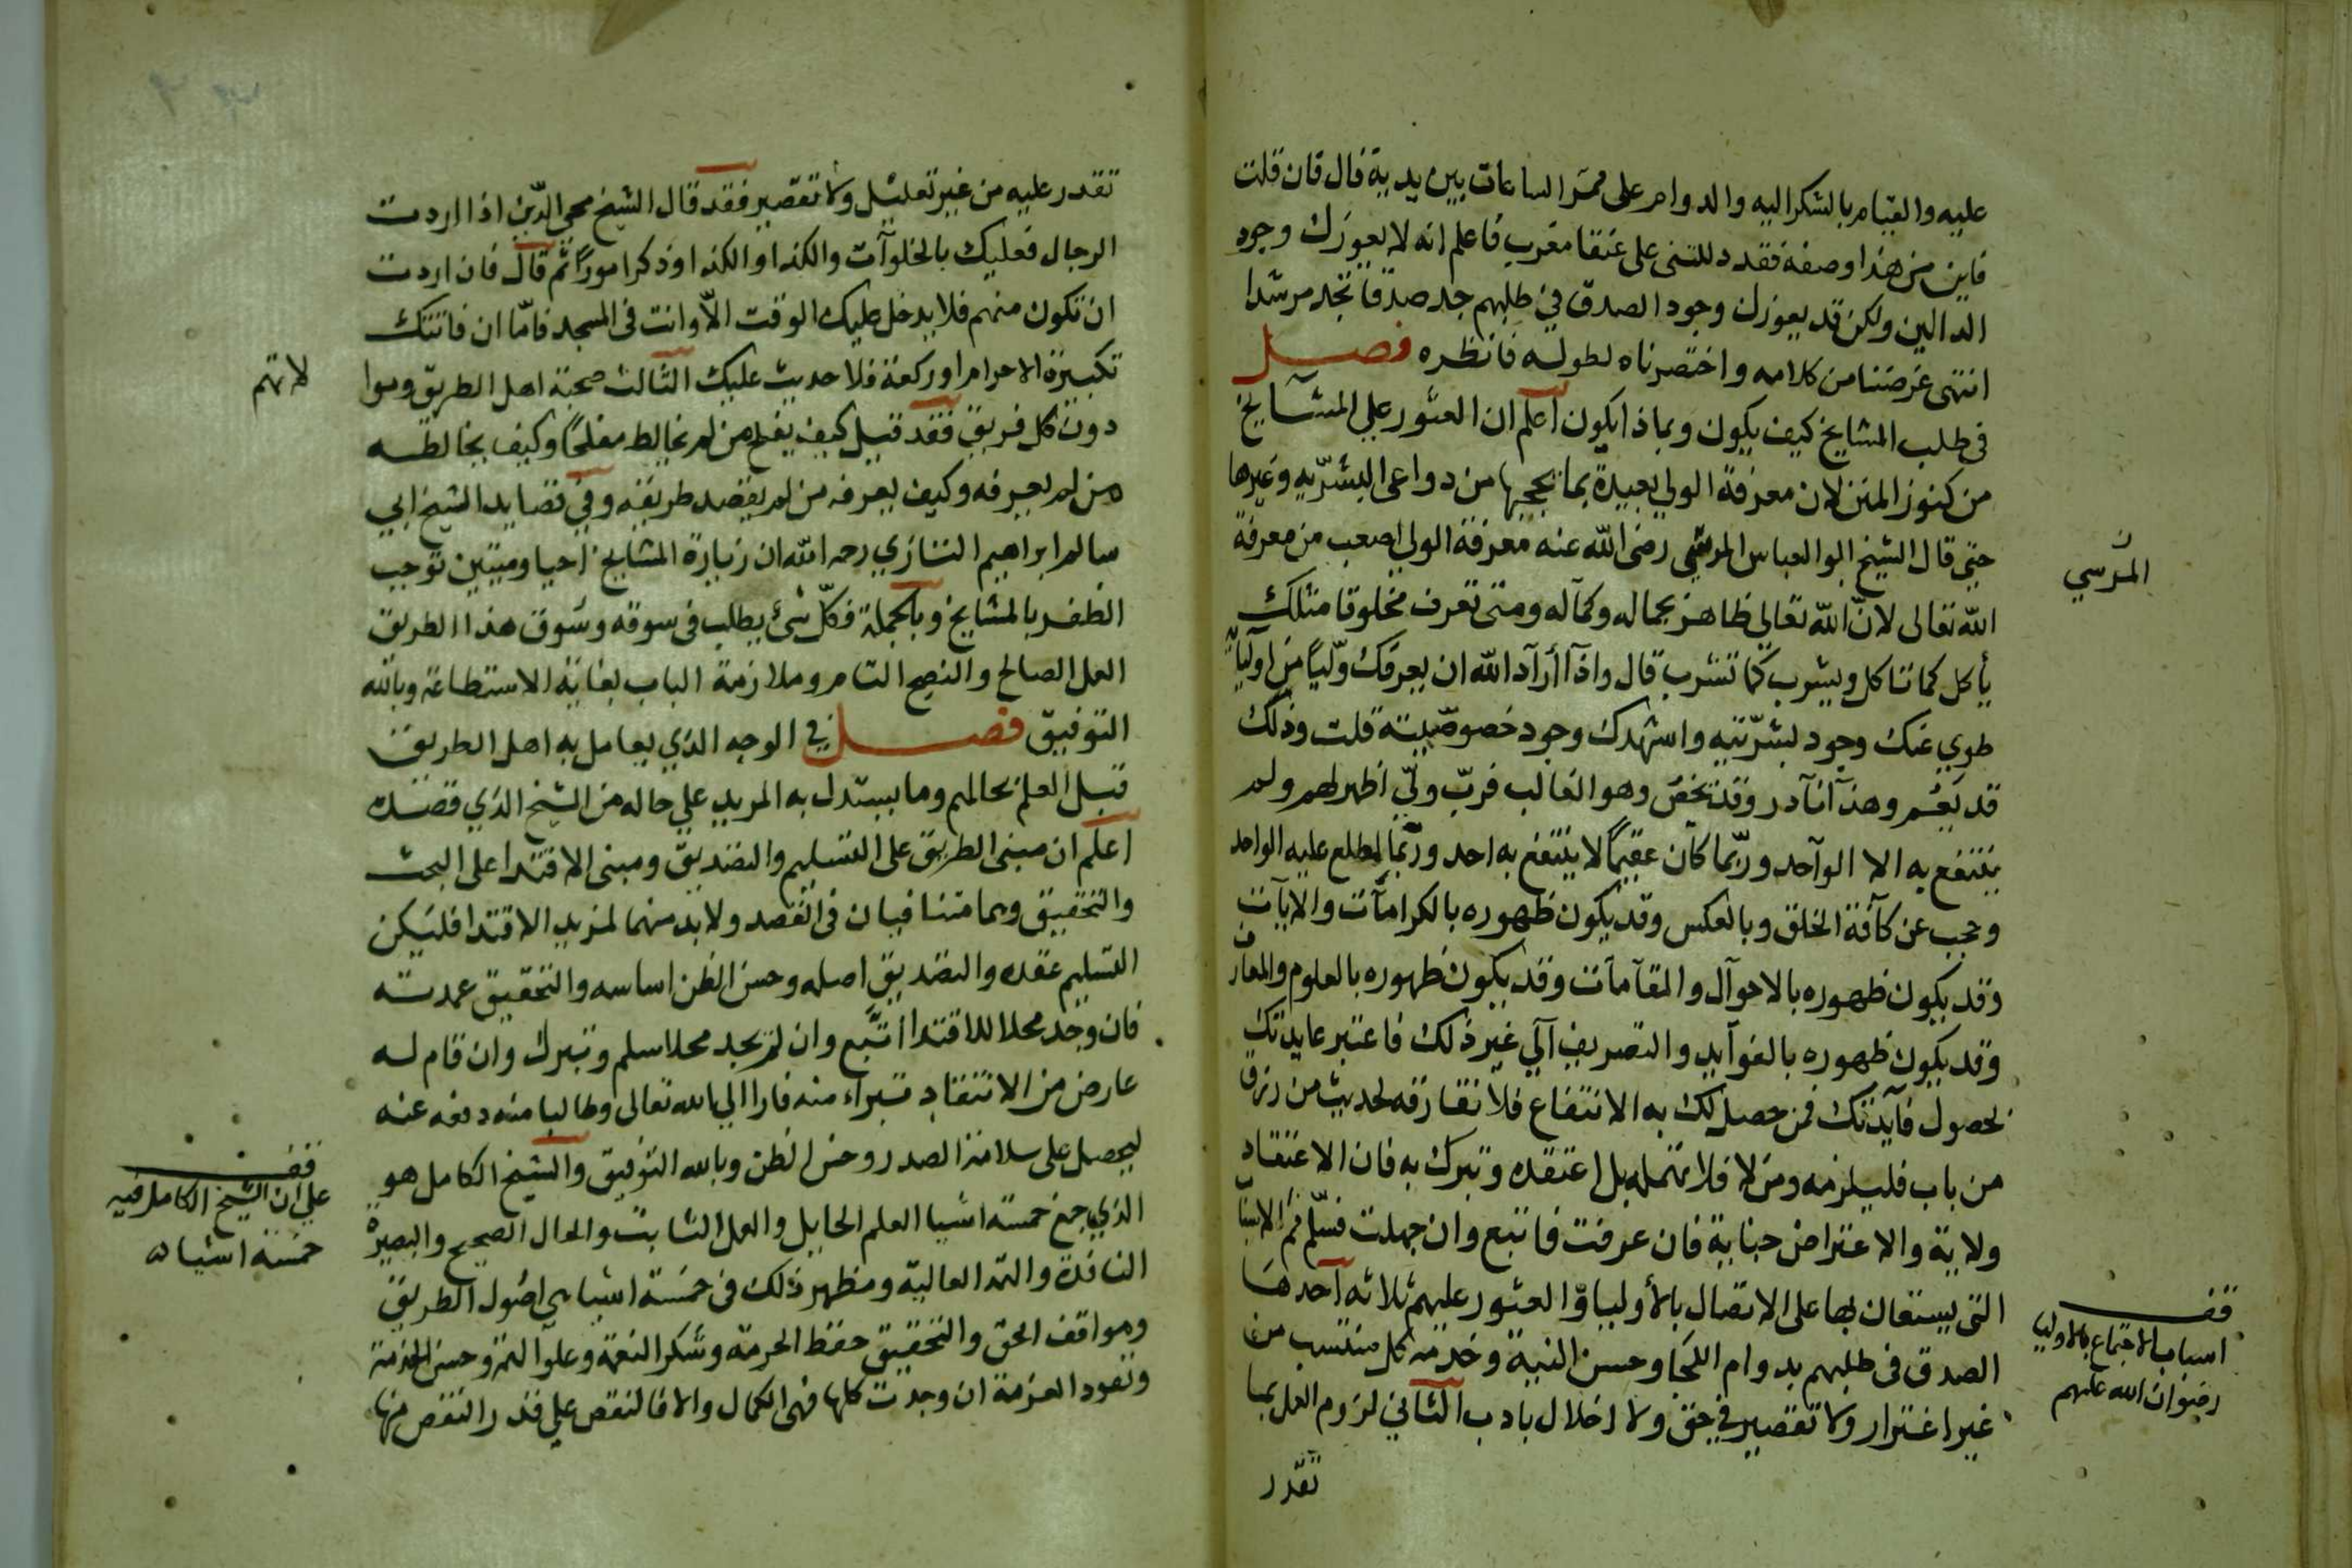 عليه والقيام بالشكر اليه والدوام على ممر الساعات بين يديه قال فان قلت
فاين من هذا وصفه فقد دللتنى على عنقا مغرب فاعلم انه لا يعوزك وجود
الدالين ولكن قد يعوزك وجود الصدق في طلبهم جد صدقا تجد مرشدا
انتهى غرضنا من كلامه واختصرناه لطوله فانظره فصل
في طلب المشايخ كيف يكون وبماذا يكون اعلم ان العثور على المشآيخ
من كنوز المنن لان معرفة الولي بعيدة بما يحجبها من دواعى البشرّيه وغيرها
حتى قال الشيخ ابو العباس المرسي رضى الله عنه معرفة الولي اصعب من معرفة
المَرْسي
الله تعالى لانّ الله تعالى ظاهر بجماله وكمآله ومتى تعرف مخلوقا مثلك
يأكل كما تاكل ويشرب كما تشرب قال واذآ أرآد الله ان يعرفك وّليًا من اوليآئه
طوي عنك وجود بشرّيته واشهدك وجود خصوصّيته قلت وذلك
قد يَعُم وهذآ نآدر وقد يخصّ وهو الغالب فربّ وليّ اظهر لهم ولم
ينتفع به الا الوآحد وربّما كان عقيمًا لا ينتفع به احد وربّما يطلع عليه الواحد
وحجب عن كآفة الخلق وبالعكس وقد يكون ظهوره بالكرامآت والايآت
وقد يكون ظهوره بالاحوآل والمقآمآت وقد يكون ظهوره بالعلوم والمعارف
وقد يكون ظهوره بالفوآيد والتصريف آلي غير ذلك فاعتبر عايدتك
بحصول فآيدتك فمن حصل لك به الانتفاع فلا تفارقه لحديث من رزق
من باب فليلزمه ومن لا فلا تهمله بل اعتقده وتبرك به فان الاعتقاد
ولاية والاعتراض جناية فان عرفت فاتبع وان جهلت فسلّم ثم الاسباب
التى يستعان بها على الاتصال بالأوليا والعثور عليهم ثلاثه آحدها
قف
اسباب الاجتماع بالاوليا
رضوان الله عليهم
الصدق في طلبهم بدوام اللجَا وحسن النية وخدمة كل منتسب من
غير اغترار ولا تقصير في حق ولا اخلال بادب الثاني لزوم العمل بما
تقدر
تقدر عليه من غير تعليل ولا تقصير فقد قال الشيخ محي الدّين اذا اردت
الرجال فعليك بالخلوآت والكذا والكذا وذكر امورًا ثم قال فان اردت
ان تكون منهم فلا يدخل عليك الوقت الاّ وانت في المسجد فامّا ان فاتتك
تكبيرة الاحرام او ركعة فلا حديث عليك الثالث صحبة اهل الطريق
دون كل فريق فقد قيل كيف يفلح من لم يخالط مفلحًا وكيف يخالطه
من لم يعرفه وكيف يعرفه من لم يقصد طريقه وفي قصايد الشيخ ابي
سالم ابراهيم التازي رحمه الله ان زيارة المشايخ احيا وميتين توجب
الظفر بالمشايخ وبالجملة فكلّ شيء يطلب في سوقه وسَوق هذا الطريق
العمل الصالح والنصح التام وملازمة الباب بغاية الاستطاعة وبالله
التوفيق فصل في الوجه الذي يعامل به اهل الطريق
قبل العلم بحالهم وما يستدل به المريد على حاله من الشيخ الذي قصَده
اعلم ان مبنى الطريق على التسليم والتصديق ومبنى الاقتدا على البحث
والتحقيق وهما متنافيان في القصد ولا بد منهما لمزيد الاقتدا فليَكن
التسليم عقده والتصديق اصله وحسن الظن اساسه والتحقيق عمدته
فان وجد محلا للاقتدا اتّبع وان لم يجد محلا سلم وتبرك وان قام له
عارض من الانتقاد تبراء منه فارا الي الله تعالى وطالبا منه دفعه عنه
ليحصل على سلامة الصدر وحسن الظن وبالله التوفيق والشيخ الكامل هو
قف
على ان الشيخ الكامل فيه
خمسة اشياء
الذي جمع خمسة اشيا العلم الحايل والعمل الثابت والحال الصحيح والبصيرة
النافذة والهمة العالية ومظهر ذلك في خمسة اشيا هي اصُول الطريق
ومواقف الحق والتحقيق حفظ الحرمة وشكر النعمة وعلوآ الهمة وحسن الخدمة
ونفود العزمة ان وجدت كلها فهي الكمال والا فالنقص علي قدر النقص منها